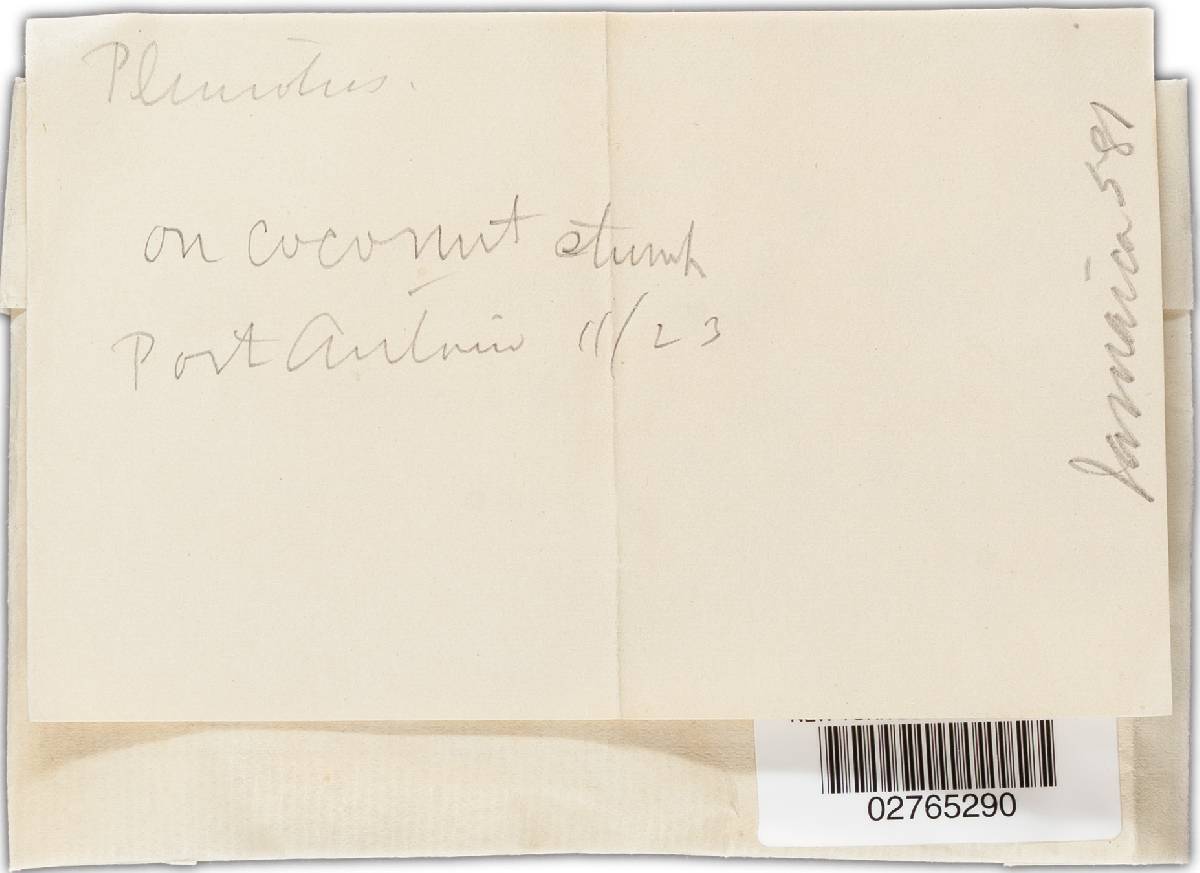 Pleurotus.
on coconut stump
Port Antonio 11/23
Jamaica 581
02765290